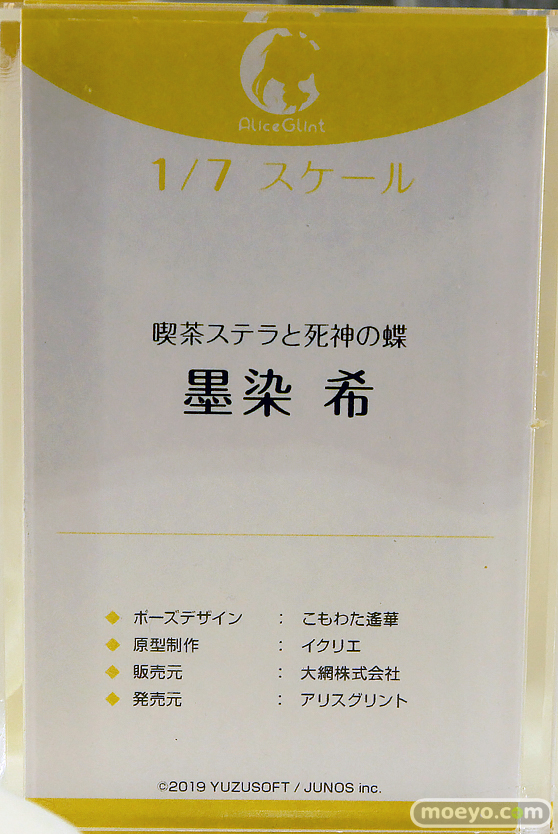 AliceGlint
1/7 スケール
喫茶ステラと死神の蝶
墨染 希
◆ ポーズデザイン ： こもわた遙華
◆ 原型制作 ： イクリエ
◆ 販売元 ： 大網株式会社
◆ 発売元 ： アリスグリント
©2019 YUZUSOFT / JUNOS inc.
moeyo.com